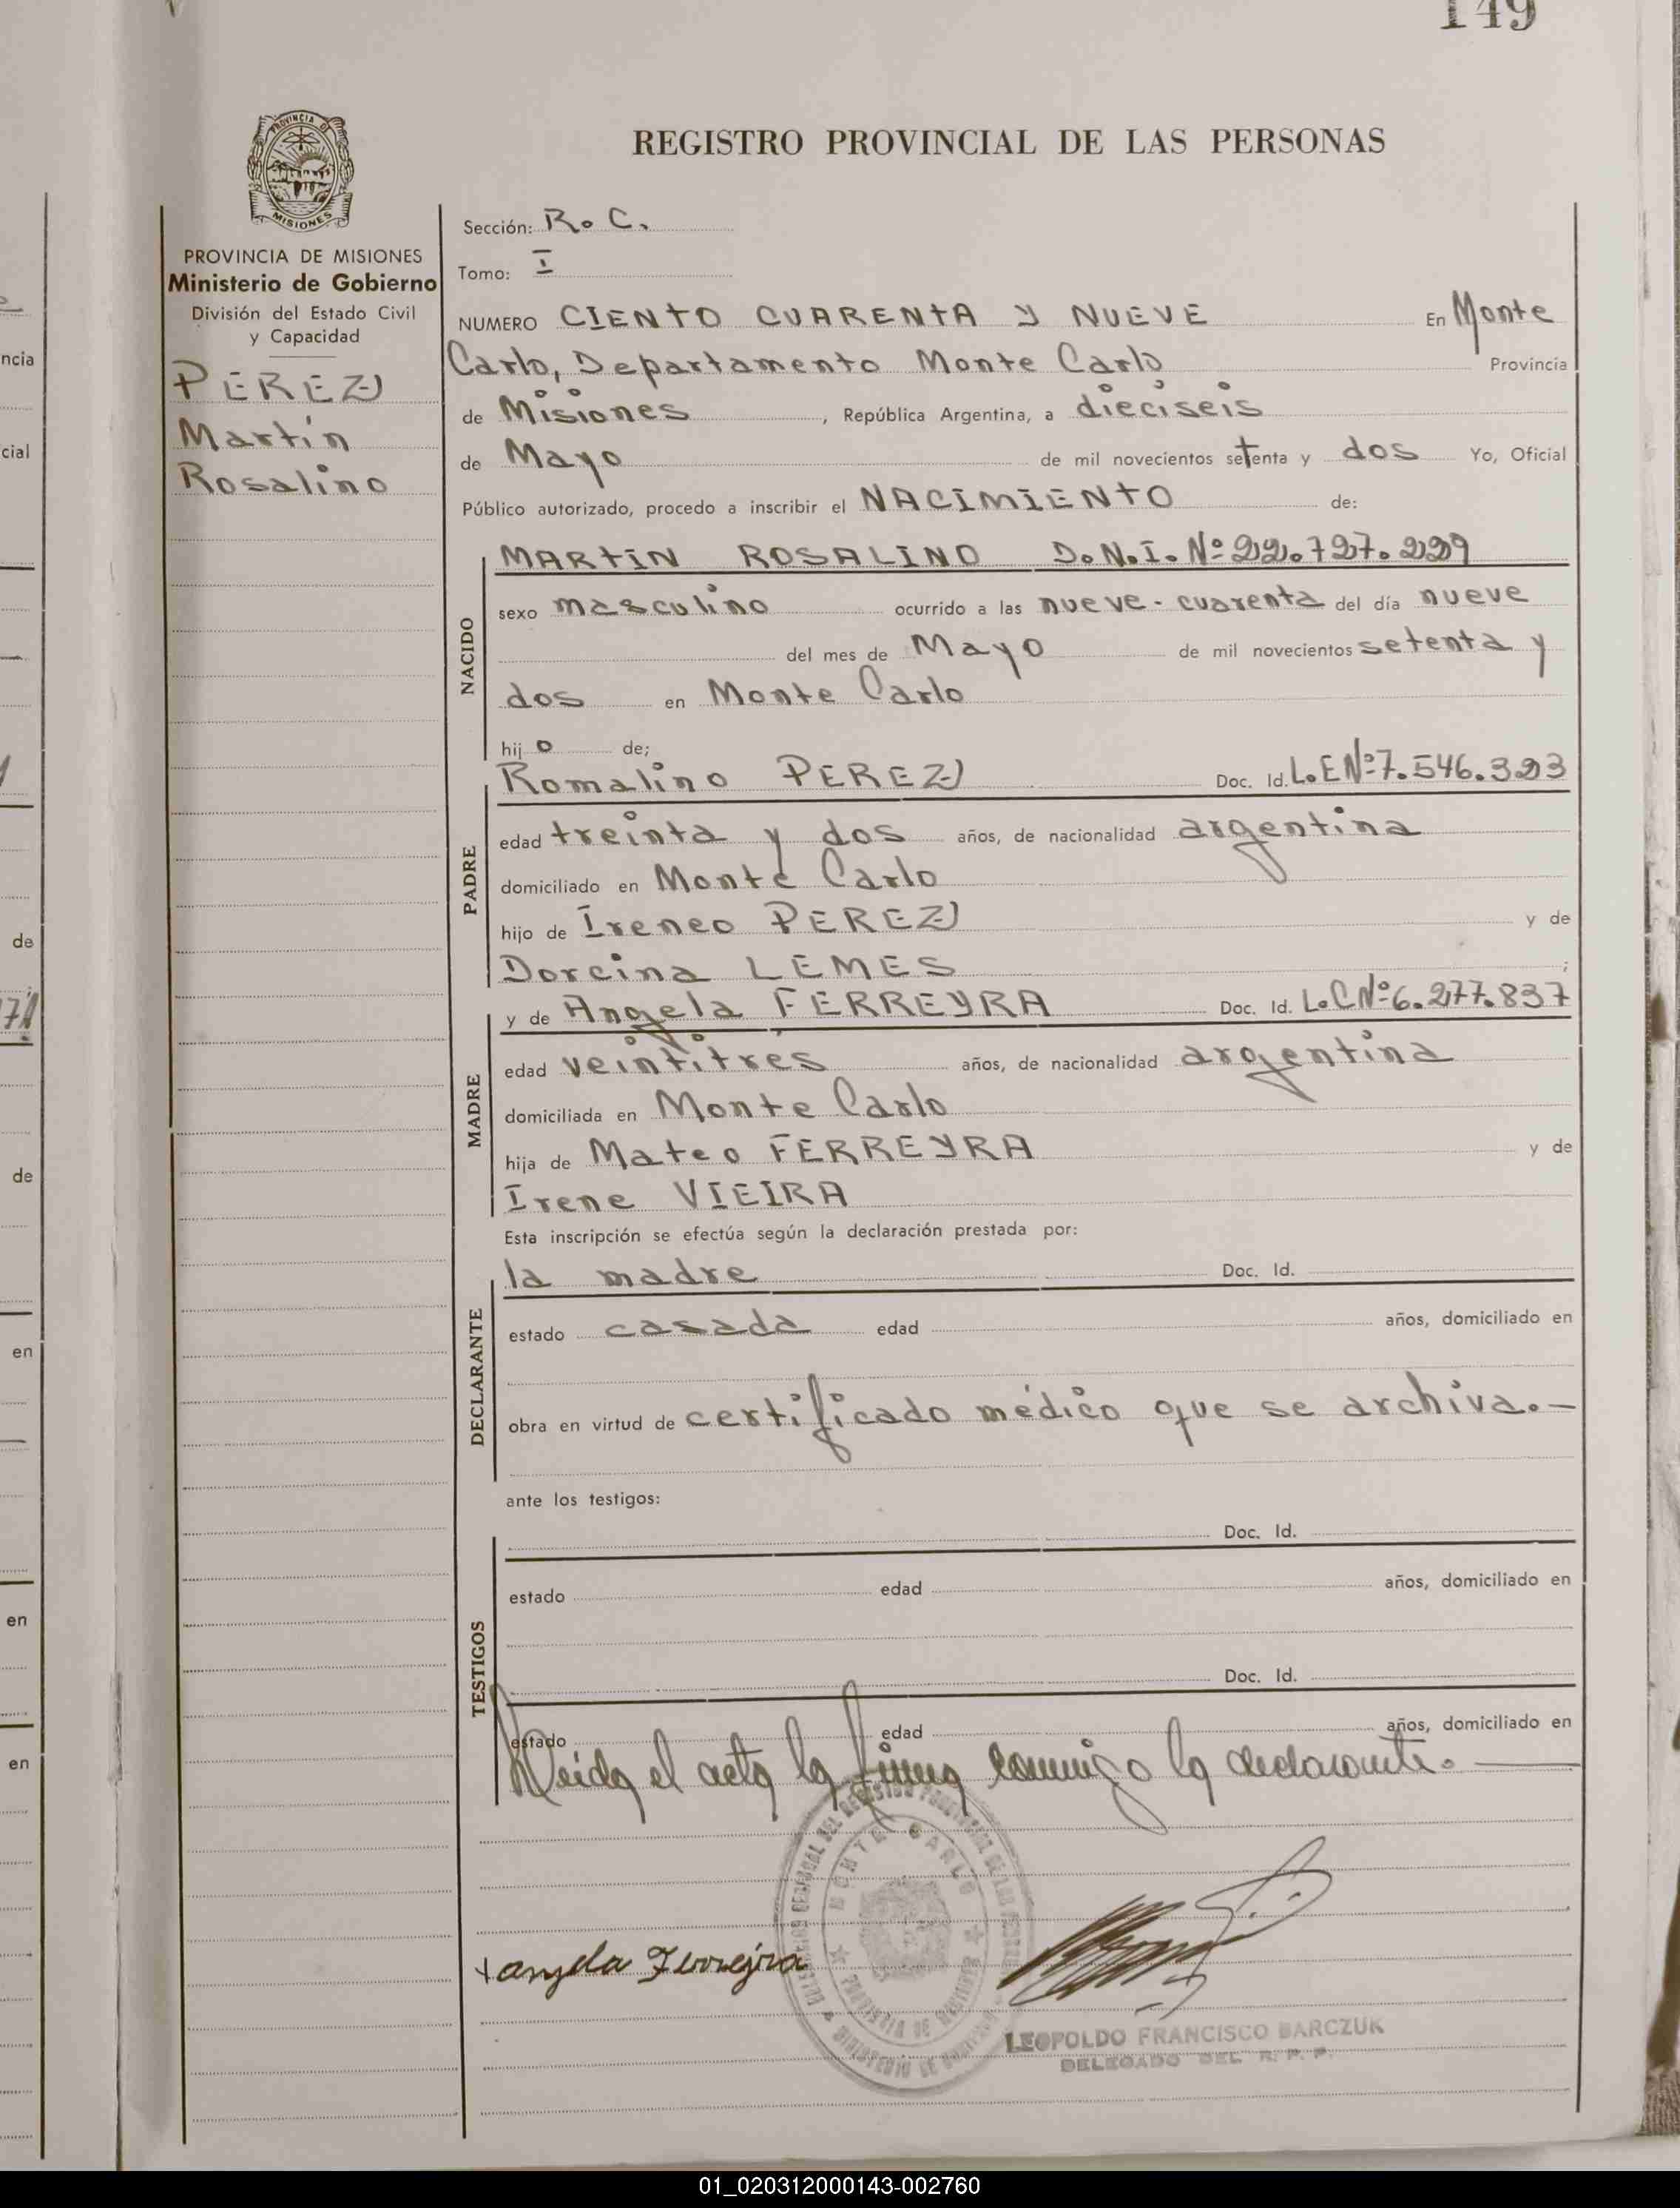 149
REGISTRO PROVINCIAL DE LAS PERSONAS
PROVINCIA DE MISIONES
Ministerio de Gobierno
División del Estado Civil
y Capacidad
PEREZ
Martín
Rosalino
Sección: R. C.
Tomo: I
NUMERO CIENTO CUARENTA Y NUEVE En Monte
Carlo, Departamento Monte Carlo Provincia
de Misiones, República Argentina, a dieciseis
de Mayo de mil novecientos setenta y dos Yo, Oficial
Público autorizado, procedo a inscribir el NACIMIENTO de:
NACIDO
MARTIN ROSALINO D.N.I. Nº 22.727.229
sexo masculino ocurrido a las nueve - cuarenta del día nueve
del mes de Mayo de mil novecientos setenta y
dos en Monte Carlo
hij o de;
PADRE
Romalino PEREZ Doc. Id. L.E Nº 7.546.323
edad treinta y dos años, de nacionalidad argentina
domiciliado en Monte Carlo
hijo de Ireneo PEREZ y de
Dorcina LEMES ;
MADRE
y de Angela FERREYRA Doc. Id. L.C Nº 6.277.837
edad veintitrés años, de nacionalidad argentina
domiciliada en Monte Carlo
hija de Mateo FERREYRA y de
Irene VIEIRA
Esta inscripción se efectúa según la declaración prestada por:
DECLARANTE
la madre Doc. Id.
estado casada edad años, domiciliado en
obra en virtud de certificado médico que se archiva.-
ante los testigos:
TESTIGOS
Doc. Id.
estado edad años, domiciliado en
Doc. Id.
estado edad años, domiciliado en
Leida el acta la firma conmigo la declarante.
MONTE CARLO
angela Ferrejra
LEOPOLDO FRANCISCO BARCZUK
DELEGADO DEL R. P. P.
01_020312000143-002760